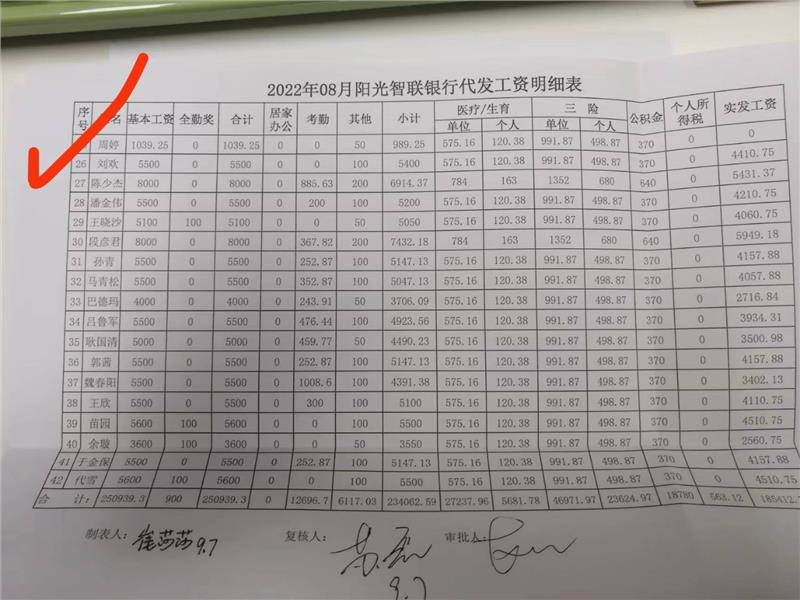 2022年08月阳光智联银行代发工资明细表
序号 名 基本工资 全勤奖 合计 居家办公 考勤 其他 小计 医疗/生育 三 险 公积金 个人所得税 实发工资
单位 个人 单位 个人
周婷 1039.25 0 1039.25 0 0 50 989.25 575.16 120.38 991.87 498.87 370 0 0
26 刘欢 5500 0 5500 0 0 100 5400 575.16 120.38 991.87 498.87 370 0 4410.75
27 陈少杰 8000 0 8000 0 885.63 200 6914.37 784 163 1352 680 640 0 5431.37
28 潘金伟 5500 0 5500 0 200 100 5200 575.16 120.38 991.87 498.87 370 0 4210.75
29 王晓沙 5100 100 5100 0 0 50 5050 575.16 120.38 991.87 498.87 370 0 4060.75
30 段彦君 8000 0 8000 0 367.82 200 7432.18 784 163 1352 680 640 0 5949.18
31 孙青 5500 0 5500 0 252.87 100 5147.13 575.16 120.38 991.87 498.87 370 0 4157.88
32 马青松 5500 0 5500 0 352.87 100 5047.13 575.16 120.38 991.87 498.87 370 0 4057.88
33 巴德玛 4000 0 4000 0 243.91 50 3706.09 575.16 120.38 991.87 498.87 370 0 2716.84
34 吕鲁军 5500 0 5500 0 476.44 100 4923.56 575.16 120.38 991.87 498.87 370 0 3934.31
35 耿国清 5000 0 5000 0 459.77 50 4490.23 575.16 120.38 991.87 498.87 370 0 3500.98
36 郭茜 5500 0 5500 0 252.87 100 5147.13 575.16 120.38 991.87 498.87 370 0 4157.88
37 魏春阳 5500 0 5500 0 1008.6 100 4391.38 575.16 120.38 991.87 498.87 370 0 3402.13
38 王欣 5500 0 5500 0 300 100 5100 575.16 120.38 991.87 498.87 370 0 4110.75
39 苗园 5600 100 5600 0 0 100 5500 575.16 120.38 991.87 498.87 370 0 4510.75
40 余璇 3600 100 3600 0 0 50 3550 575.16 120.38 991.87 498.87 370 0 2560.75
41 于金保 5500 0 5500 0 252.87 100 5147.13 575.16 120.38 991.87 498.87 370 0 4157.88
42 代雪 5600 100 5600 0 0 100 5500 575.16 120.38 991.87 498.87 370 0 4510.75
合 计: 250939.3 900 250939.3 0 12696.7 6117.03 234062.59 27237.96 5681.78 46971.97 23624.97 18780 563.12 185412.
制表人: 崔莎莎 9.7 复核人: 审批人:
9.7